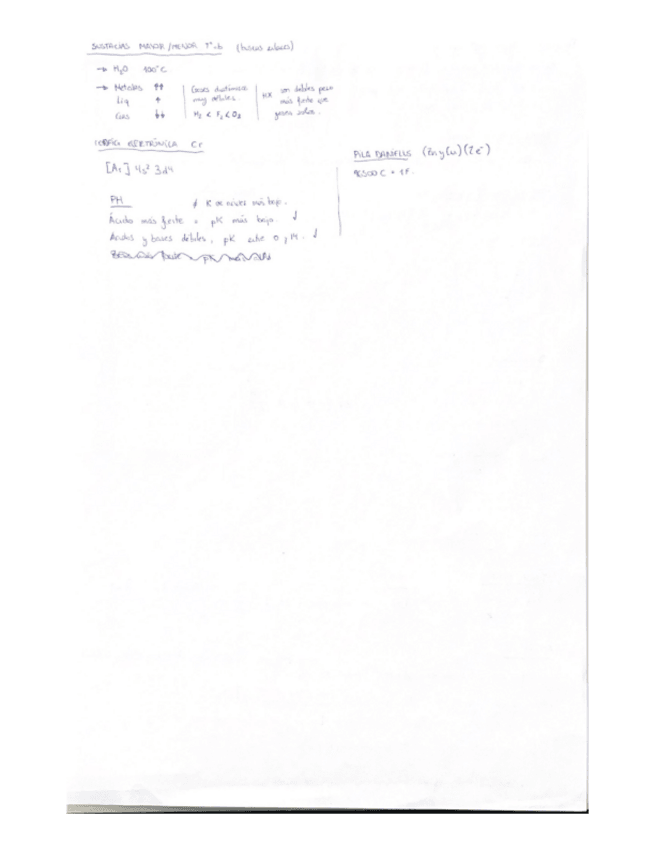 SUSTANCIAS MAYOR/MENOR Tª eb (buscar enlaces)
→ H₂O 100°C
→ Metales ↑↑
Liq ↑
Gas ↓↓
Gases diatómicos muy débiles
H₂ < F₂ < O₂
HX son débiles pero
más fuerte que
gases
CONFIG ELECTRÓNICA Cr
[Ar] 4s² 3d4
PH
K de nivel más bajo.
Ácido más fuerte = pK más bajo. ↓
Ácidos y bases débiles, pK entre 0 y 14. ↓
PILA DANIELLS (Zn y Cu) (2e⁻)
96500 C = 1F.